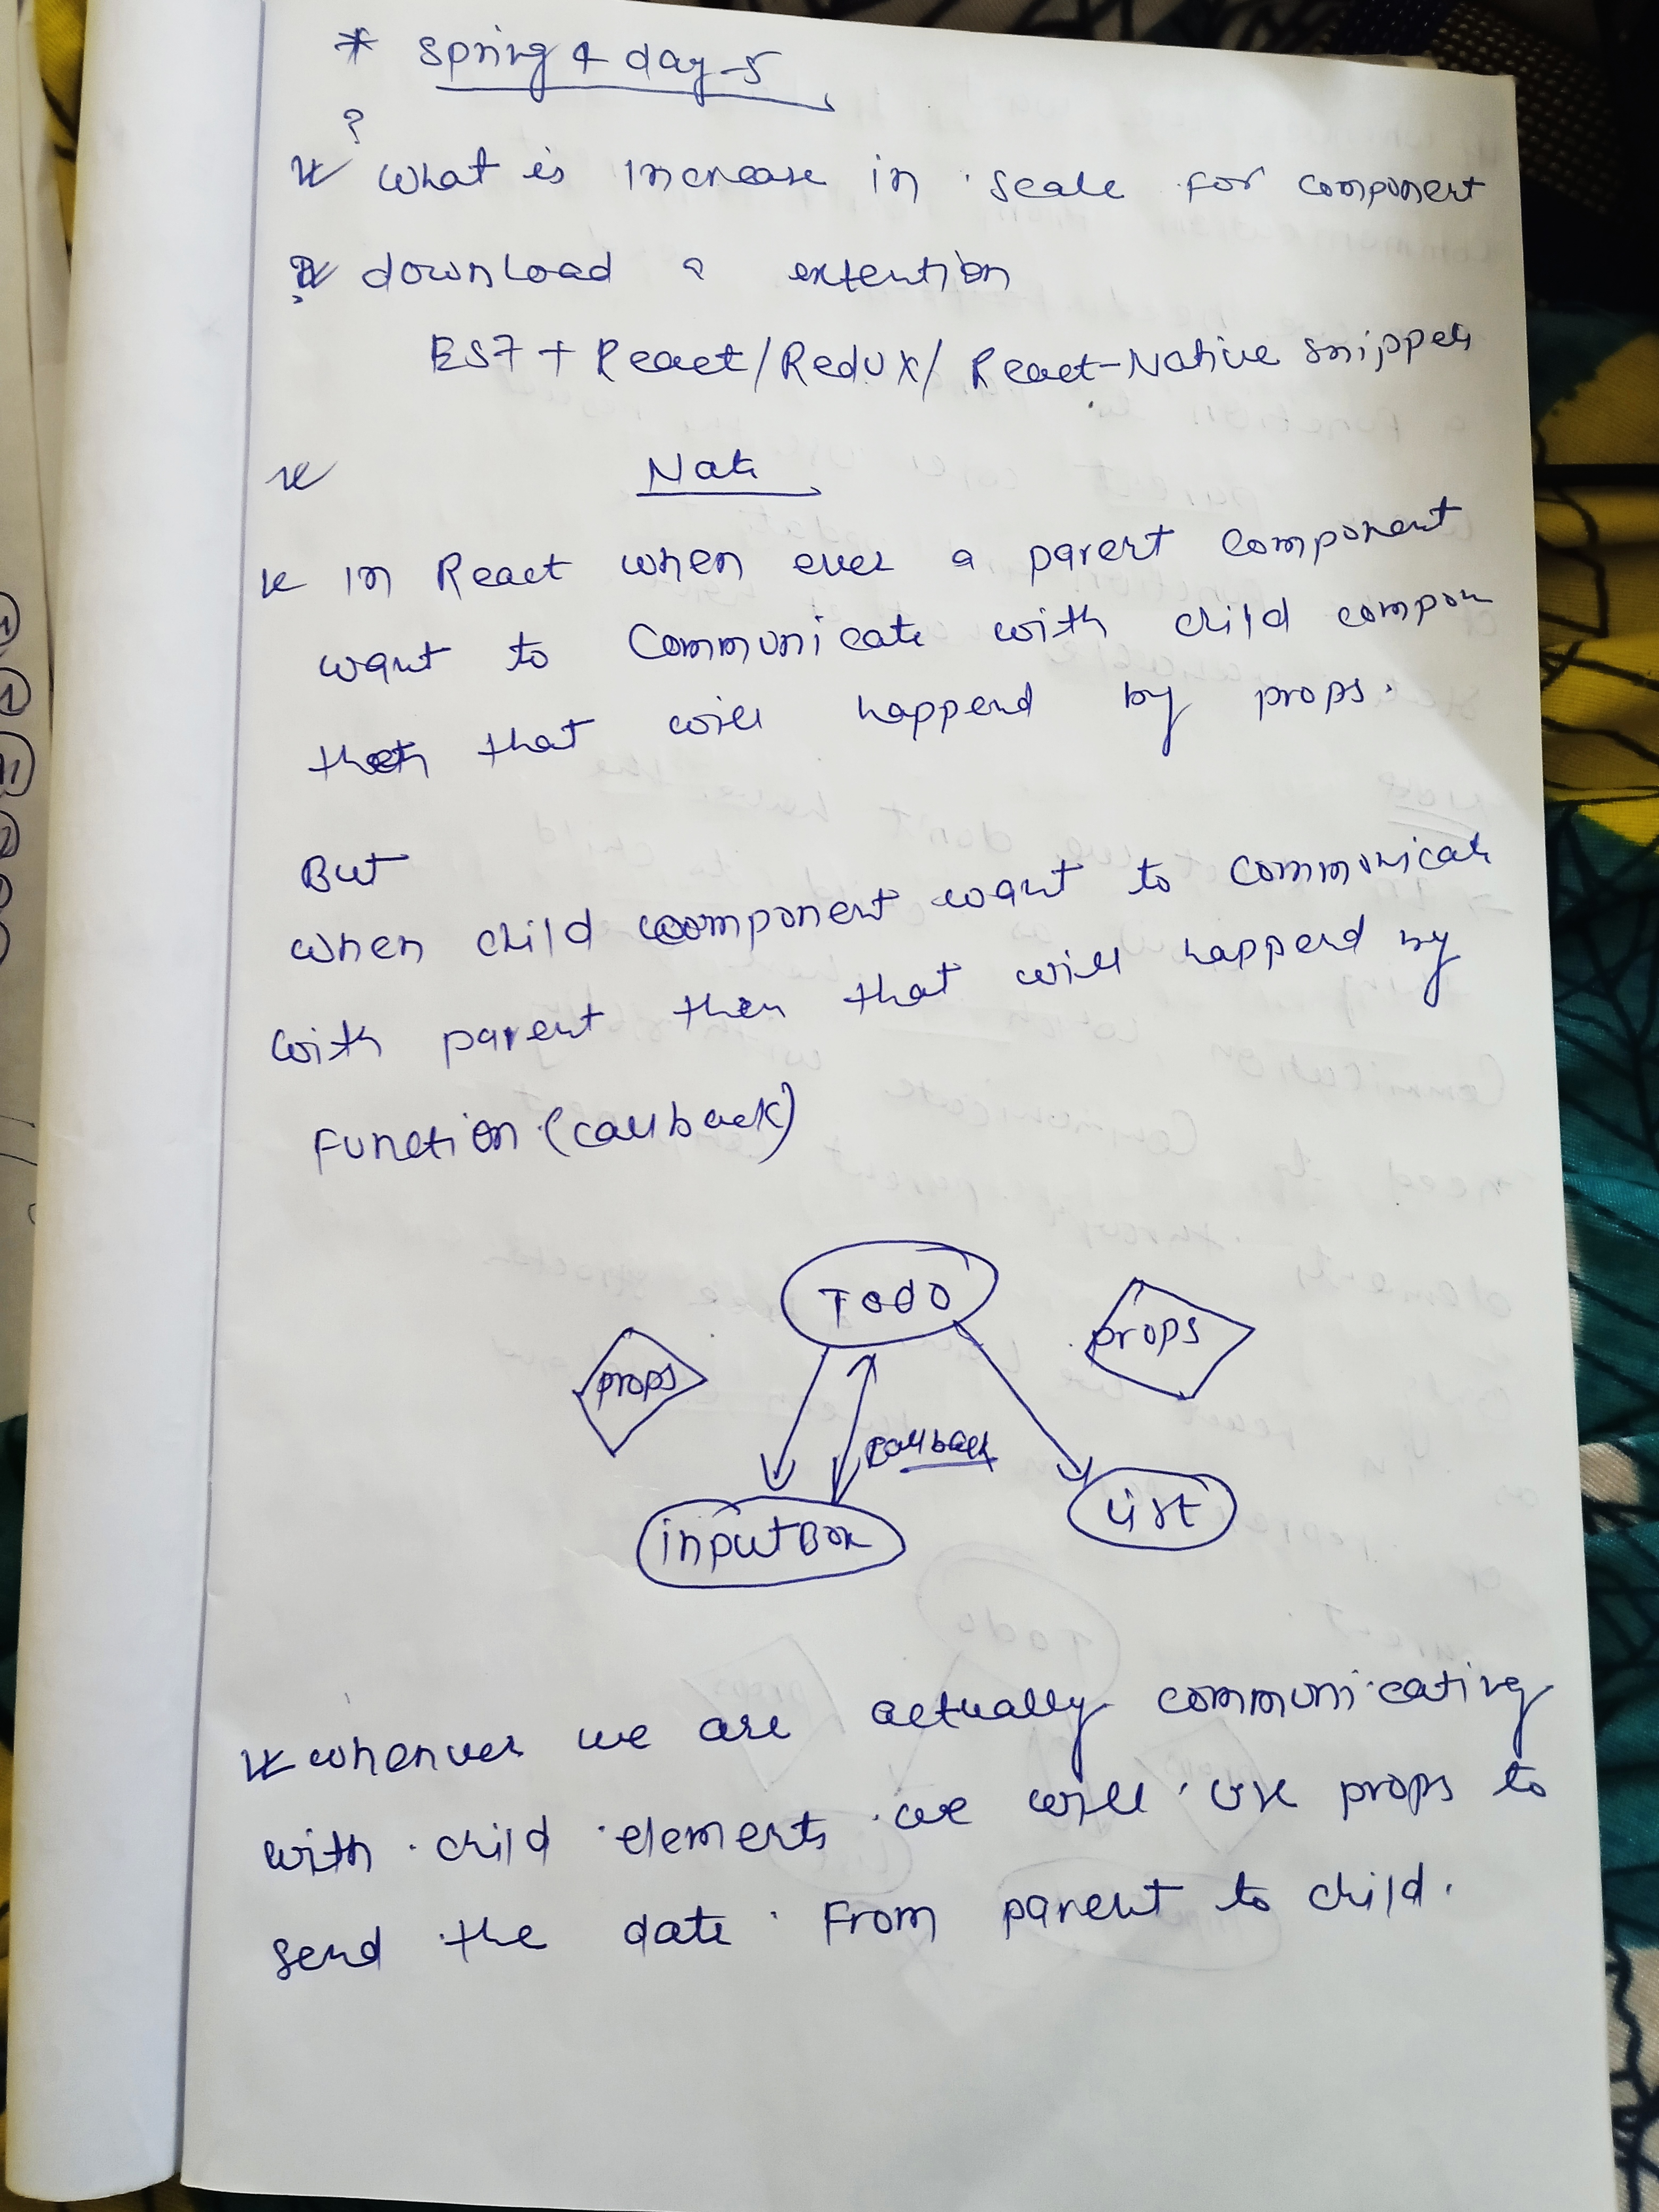 * spring 4 day-5
?
* what is increase in scale for component
* download a extention
ES7 + React/Redux/ React-Native snippets
* Note
* in React when ever a parent component
want to communicate with child compon
then that will happend by props.
But
when child component want to communicate
with parent then that will happend by
Function (callback)
Todo
props
props
callback
inputBox
List
* whenver we are actually communicating
with child elements we will use props to
send the date From parent to child.